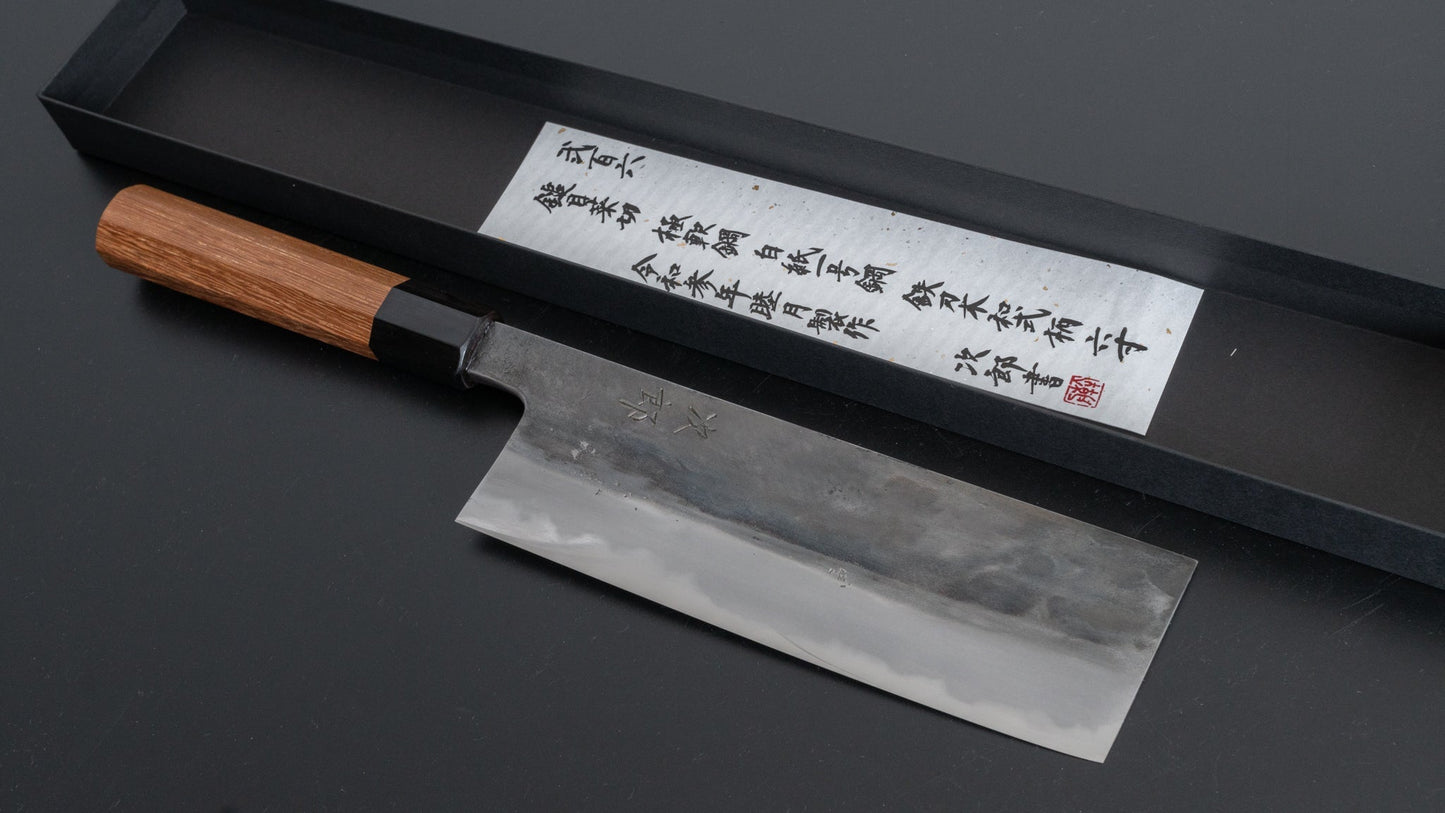 弐百六
鎚目菜切 極軟鋼 白紙一号鋼 鉄刃木和式柄 六寸
令和参年睦月製作 次郎書
次郎